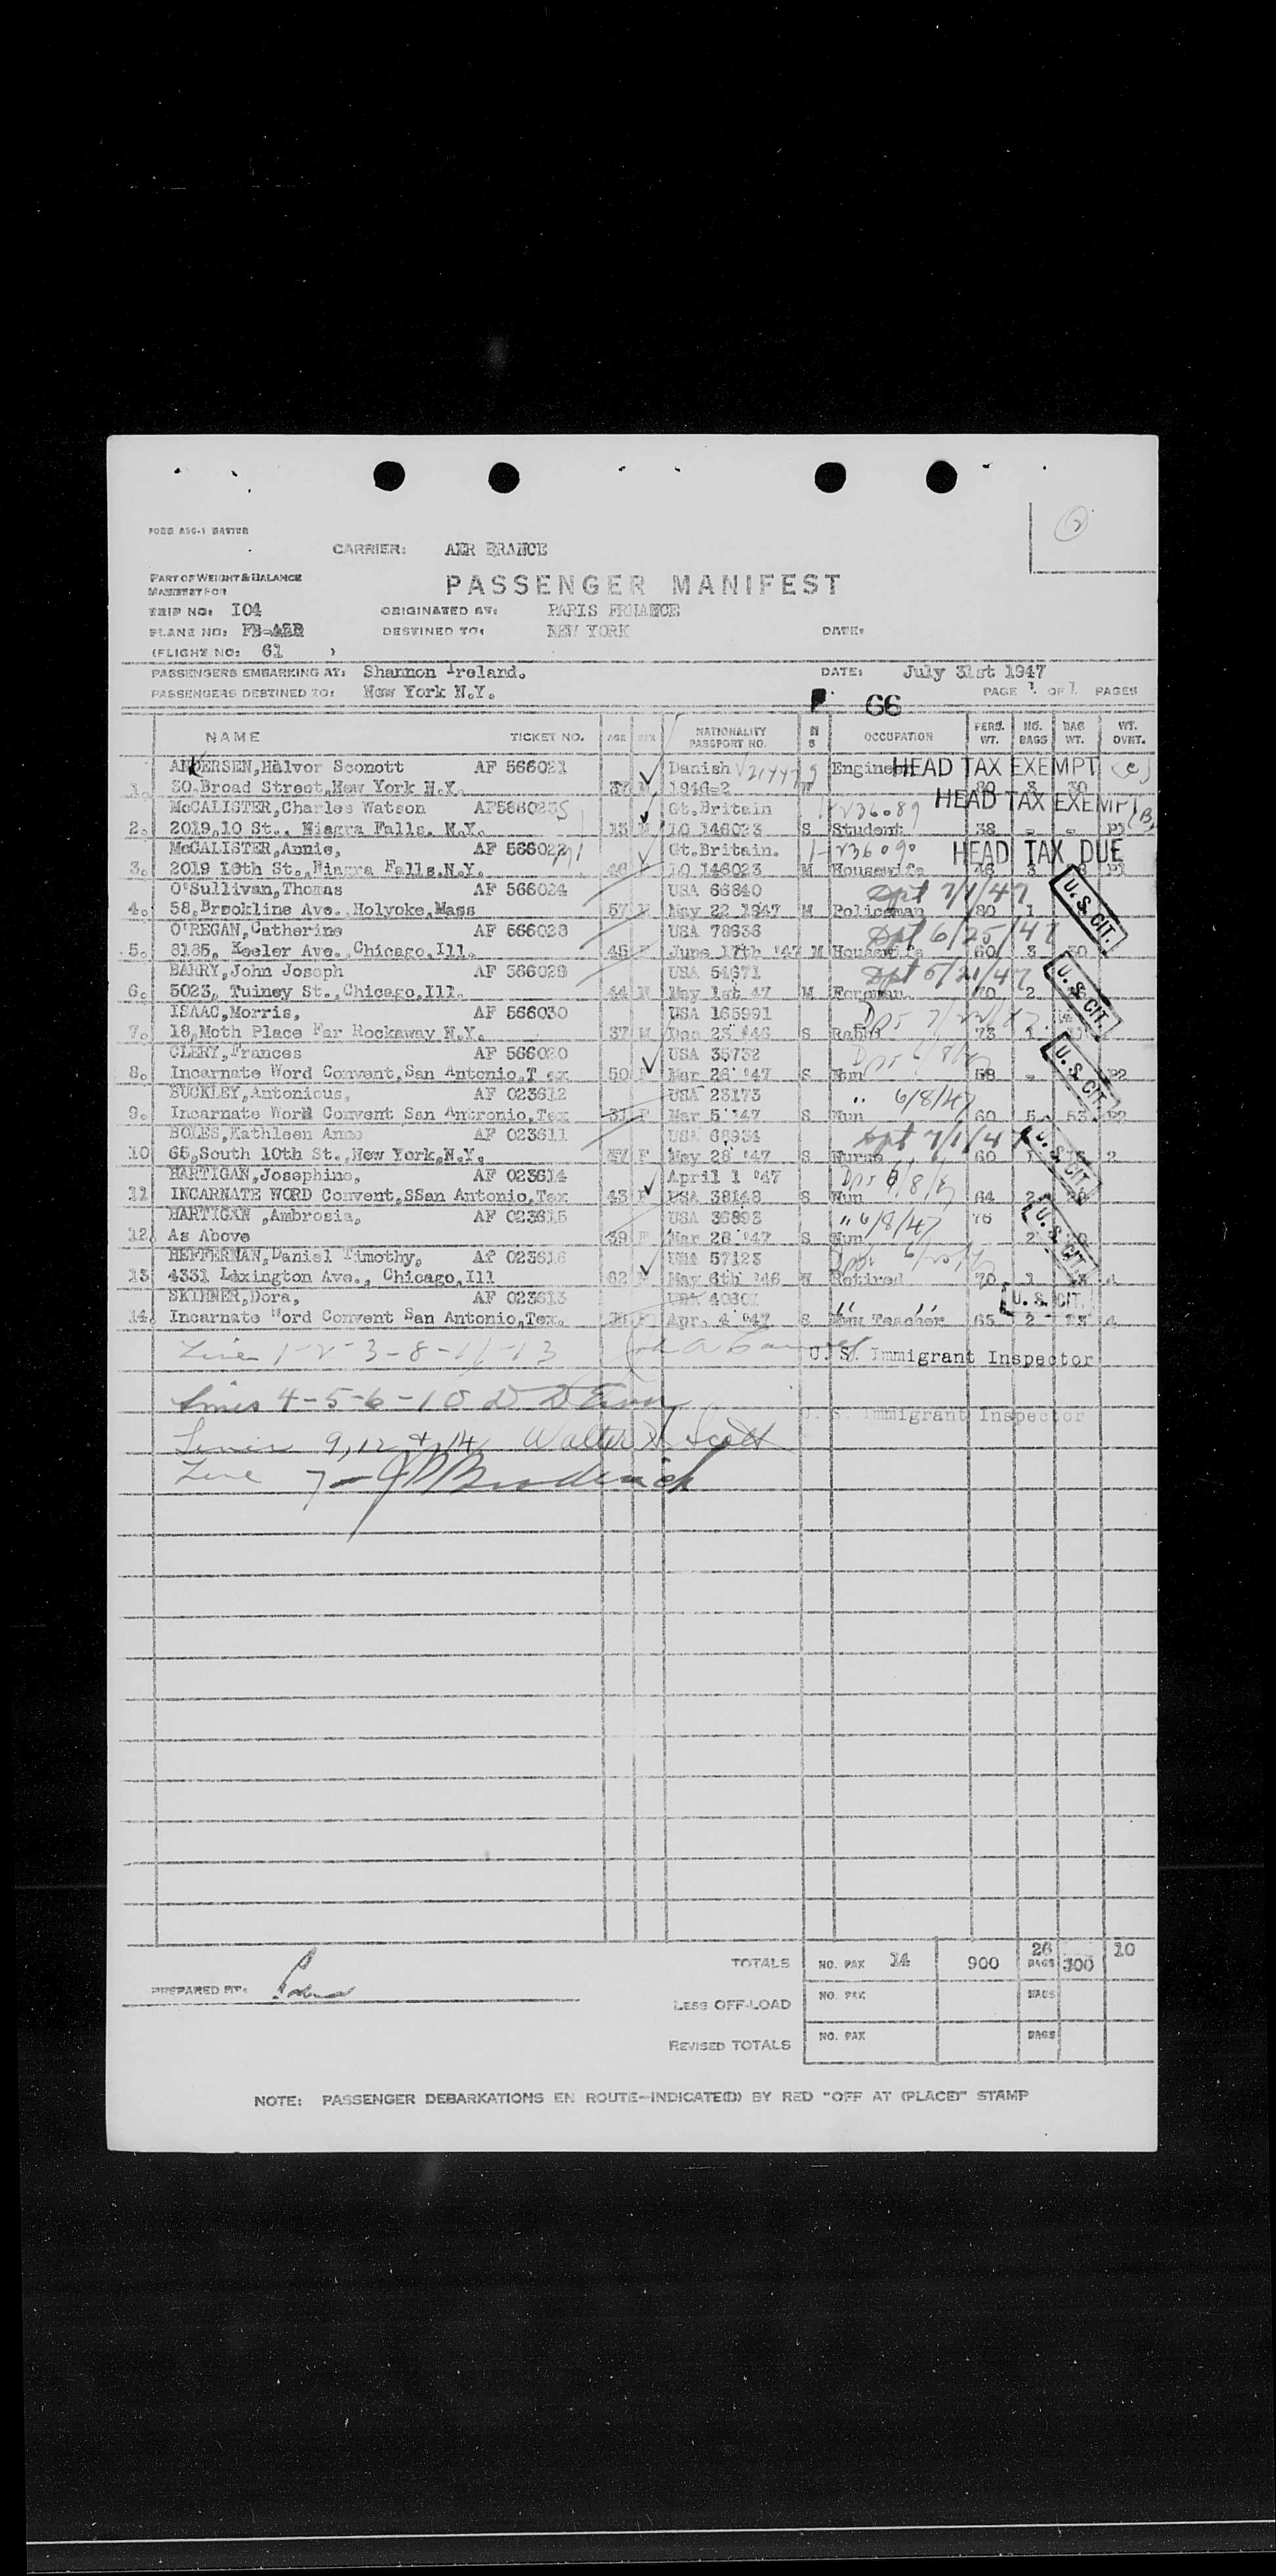 FORM ASC-1 MASTER
CARRIER: AIR FRANCE
PART OF WEIGHT & BALANCE
MANIFEST FOR
PASSENGER MANIFEST
TRIP NO: I04 ORIGINATED AT: PARIS FRNANCE
PLANE NO: DESTINED TO: NEW YORK DATE:
(FLIGHT NO: 61 )
PASSENGERS EMBARKING AT: Shannon Ireland. DATE: July 31st 1947
PASSENGERS DESTINED TO: New York N.Y. PAGE 1 OF 1 PAGES
66
NAME TICKET NO. AGE SEX NATIONALITY PASSPORT NO. M S OCCUPATION PERS. WT. NO. BAGS BAG WT. WT. OVNT.
ANDERSEN,Halvor Sconott AF 566021 Danish Engineer HEAD TAX EXEMPT (c)
1. 30 Broad Street,New York N.Y. 37 M 1946-2
McCALISTER,Charles Watson Gt.Britain HEAD TAX EXEMPT (B)
2. 2019,10 St., Niagra Falls. N.Y. 13 M LO 146023 S Student 38 - -
McCALISTER,Annie, AF 566022 Gt.Britain. HEAD TAX DUE
3. 2019 10th St.,Niagra Falls.N.Y. 46 F LO 146023 M Housewife 46 3
O'Sullivan,Thomas AF 566024 USA 66840 Dpt 7/1/47 U.S. CIT.
4. 58,Brookline Ave.,Holyoke,Mass 57 M May 22 1947 M Policeman 80 1
O'REGAN,Catherine AF 566028 USA 78636 Dpt 6/25/47
5. 8185, Keeler Ave.,Chicago,Ill. 45 F June 17th '47 M Housewife 60 3 50
BARRY,John Joseph AF 566029 USA 54671 U.S. CIT.
6. 5023, Tuiney St.,Chicago,Ill. 44 M May 1st 47 M Foreman 70 2
ISAAC,Morris, AF 566030 USA 165991
7. 18,Moth Place Far Rockaway N.Y. 37 M Dec 23 '46 S Rabbi 73 1
CLERY,Frances AF 566020 USA 35732 U.S. CIT.
8. Incarnate Word Convent,San Antonio,T ex 50 F Mar 26 '47 S Nun 58 -
BUCKLEY,Antonious, AF 023612 USA 23173 " 6/8/47
9. Incarnate Word Convent San Antronio,Tex 31 F Mar 5 '47 S Nun 60 5 53
BOLES,Kathleen Anne AF 023611 USA 68934 Dpt 7/1/47 U.S. CIT.
10 65,South 10th St.,New York,N.Y. F May 28 '47 S Nurse 60 1 2
HARTIGAN,Josephine, AF 023614 April 1 '47
11 INCARNATE WORD Convent,SSan Antonio,Tex 43 F USA 38148 S Nun 64 2
HARTIGAN ,Ambrosia, AF 023615 USA 36893 " 6/8/47 76 U.S. CIT.
12 As Above 39 F Mar 26 '47 S Nun 2
HEFFERNAN,Daniel Timothy, AF 023616 USA 57123
13 4331 Lexington Ave., Chicago,Ill 62 M May 6th '46 W Retired 70 1 4
SKINNER,Dora, AF 023613 USA 40301 " " U.S. CIT.
14 Incarnate Word Convent San Antonio,Tex. Apr. 4 '47 S Nun Teacher 65 2 4
Line 1-2-3-8-11-13 U. S. Immigrant Inspector
Lines 4-5-6-10 U. S. Immigrant Inspector
Lines 9, 12 & 14 Walter Scott
Line 7 - Broderick
TOTALS NO. PAX 14 900 26 BAGS 300 10
PREPARED BY:
LESS OFF-LOAD NO. PAX BAGS
REVISED TOTALS NO. PAX BAGS
NOTE: PASSENGER DEBARKATIONS EN ROUTE—INDICATE(D) BY RED "OFF AT (PLACE)" STAMP